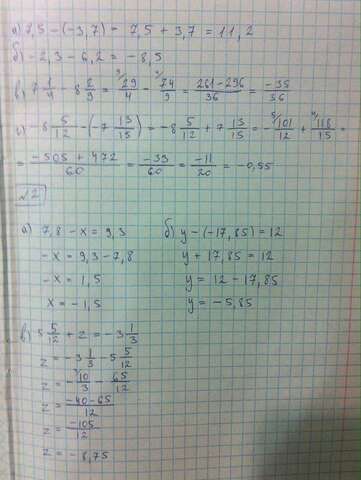 а) 7,5 - (-3,7) = 7,5 + 3,7 = 11,2
б) -2,3 - 6,2 = -8,5
в) 7 1/4 - 8 2/9 = 29/4 - 74/9 = (261-296)/36 = -35/36
г) -8 5/12 - (-7 13/15) = -8 5/12 + 7 13/15 = -101/12 + 118/15 =
= (-505 + 472)/60 = -33/60 = -11/20 = -0,55
№2
а) 7,8 - x = 9,3 б) y - (-17,85) = 12
-x = 9,3 - 7,8 y + 17,85 = 12
-x = 1,5 y = 12 - 17,85
x = -1,5 y = -5,85
в) 5 5/12 + z = -3 1/3
z = -3 1/3 - 5 5/12
z = -10/3 - 65/12
z = (-40-65)/12
z = -105/12
z = -8,75